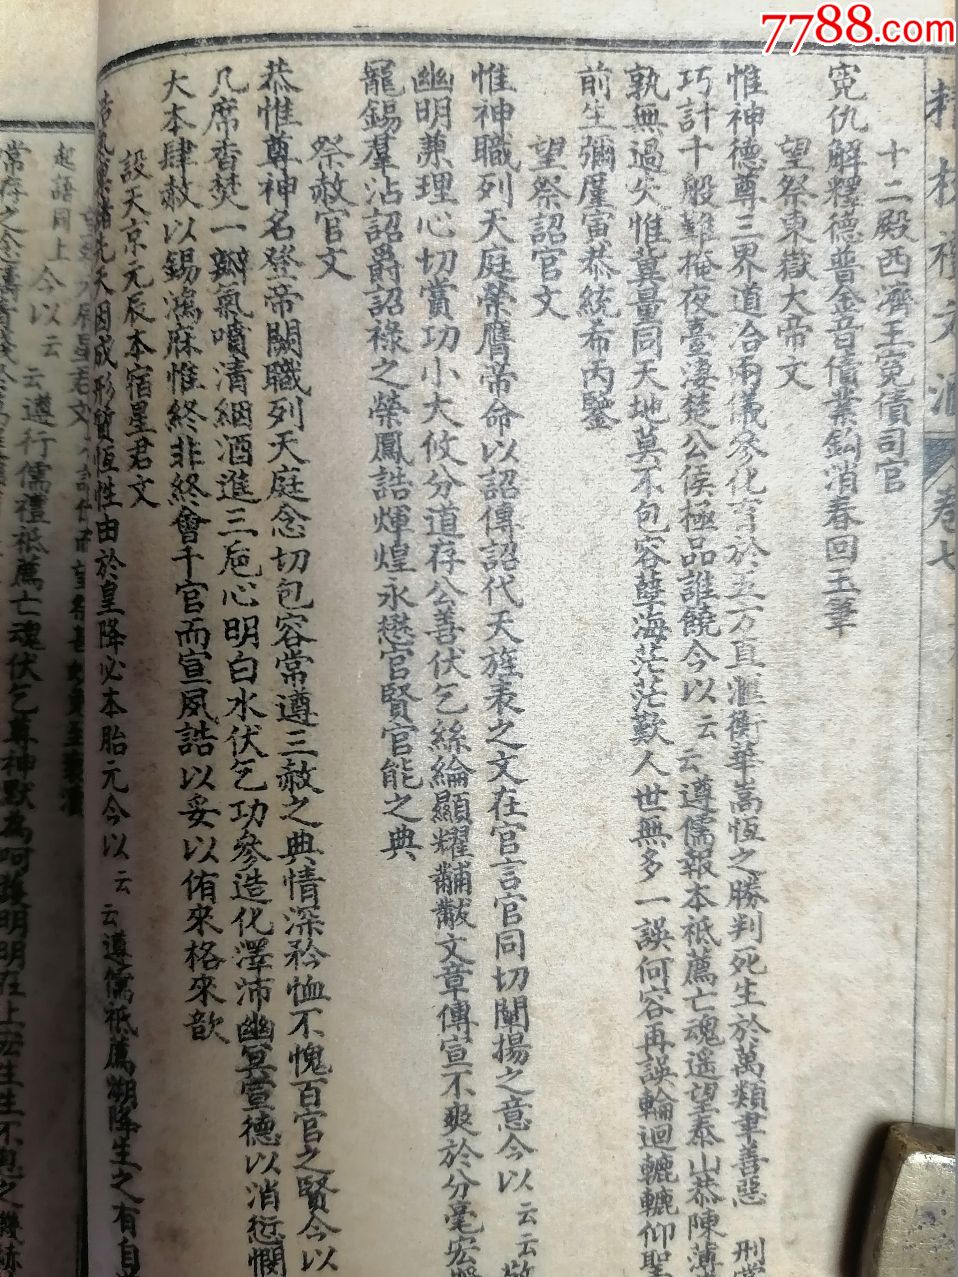 7788.com
卷七
十二殿西濟王寃債司官
寃仇解釋德普金音債業鈎消春回玉筆
望祭東嶽大帝文
惟神德尊三界道洽兩儀參化育於五方直滙衡華嵩恆之勝判死生於萬類聿善惡
巧計千般難掩夜臺淒楚公侯極品誰饒今以云云遵儒報本祗薦亡魂遥望泰山恭陳薄
孰無過失惟莫量同天地莫不包容孽海茫茫歎人世無多一誤何容再誤輪迴轆轆仰聖
前生彌廑寅恭統希丙鑒
望祭詔官文
惟神職列天庭榮膺帝命以詔傳詔代天旌表之文在官言官同切闡揚之意今以云云敬
幽明兼理心切賞功小大攸分道存公善伏乞絲綸顯耀黼黻文章傳宣不爽於分毫宏
寵錫羣沾詔爵詔祿之榮鳳誥煇煌永懋官賢官能之典
祭赦官文
恭惟尊神名登帝闕職列天庭念切包容常遵三赦之典情深矜恤不愧百官之賢今以
几席香焚一瓣氣噴清絪酒進三巵心明白水伏乞功參造化澤沛幽冥萱德以消愆憫
大本肆赦以錫鴻庥惟終非終會千官而宣夙誥以妥以侑來格來歆
設天京元辰本宿星君文
先天因成形質恆性由於皇降必本胎元今以云云遵儒祗薦溯降生之有自
起語同上今以云云遵行儒禮祗薦亡魂伏乞尊神默為呵護明明在上宏生生不息之機
常存之念